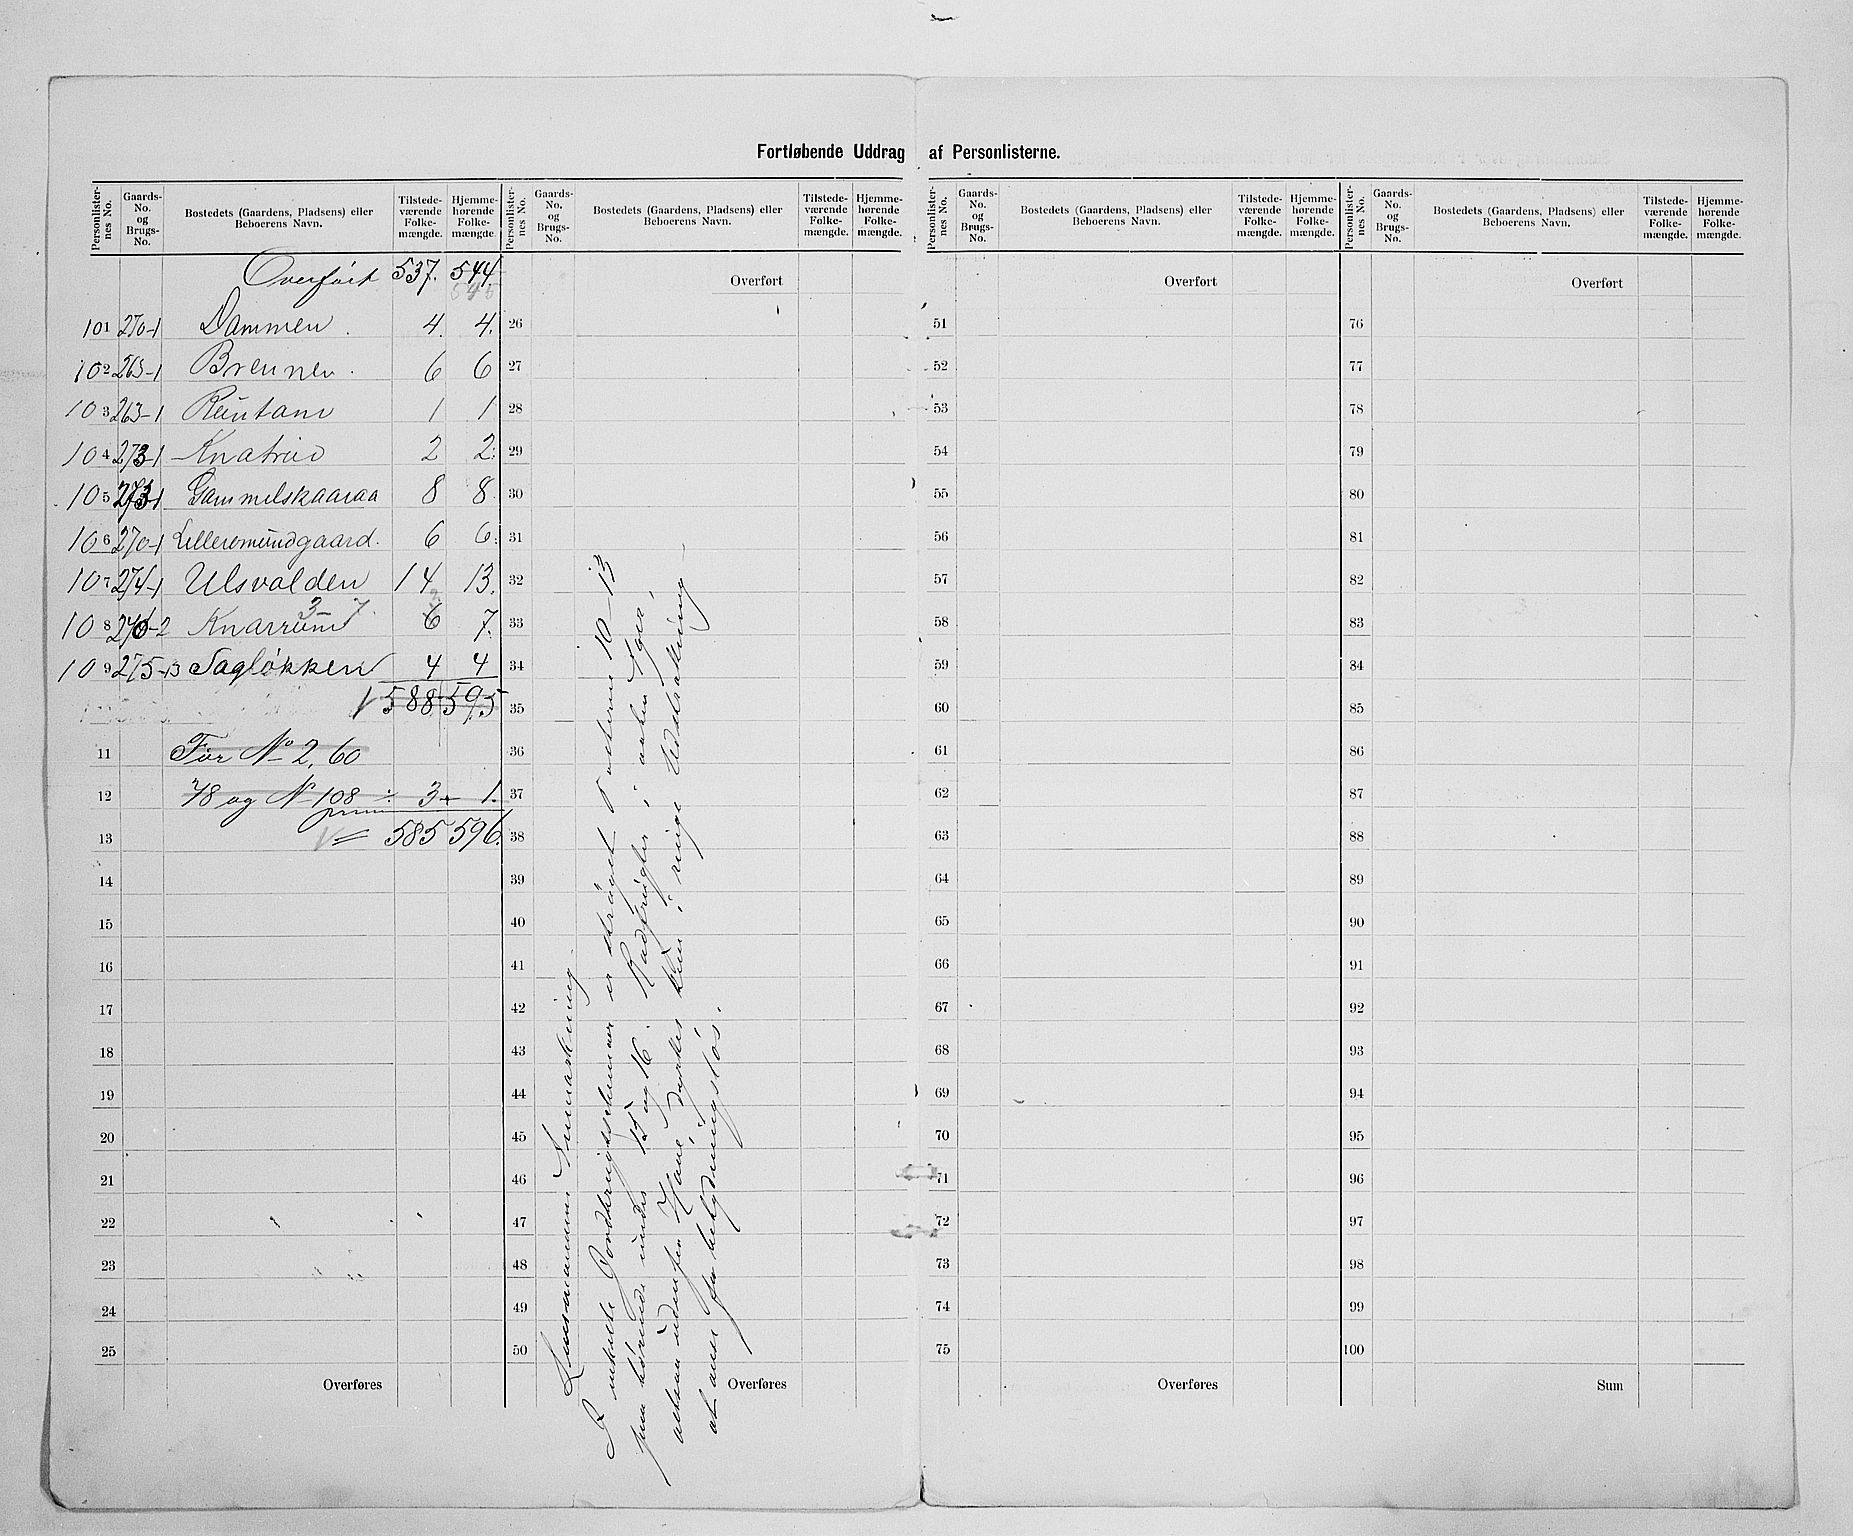 Fortløbende Uddrag af Personlisterne.
Personlisternes No. Gaards-No. og Brugs-No. Bostedets (Gaardens, Pladsens) eller Beboerens Navn. Tilstedeværende Folkemængde. Hjemmehørende Folkemængde.
Overført 537. 544.
545
101 270-1 Dammen. 4. 4.
102 263-1 Brennen. 6 6
103 263-1 1 1
104 273-1 Knatrud 2 2.
105 273-1 Gammelskaaraa 8 8
106 270-1 Lilleromundgaard. 6 6.
107 274-1 Ulsvolden 14 13.
3 7.
108 276-2 Knarrund 6 7.
109 275-13 Sagløkken 4 4
588 595
11 For No 2, 60
12 78 og No 108 ÷ 3 + 1.
13 = 585 596.
14
15
16
17
18
19
20
21
22
23
24
25
Overføres
Personlisternes No. Gaards-No. og Brugs-No. Bostedets (Gaardens, Pladsens) eller Beboerens Navn. Tilstedeværende Folkemængde. Hjemmehørende Folkemængde.
Overført
26
27
28
29
30
31
32
33
34
35
36
37
38
39
40
41
42
43
44
45
46
47
48
49
50
Overføres
Anmærkning.
I enkelte Jordbrugsskemaer er strøget Posterne 10-13
hørende under 15 og 16. Rodfrugter i aaben Ager,
altsaa udenfor Have, dyrkes kun i ringe Udstrækning
at anse for betydningsløs.
Personlisternes No. Gaards-No. og Brugs-No. Bostedets (Gaardens, Pladsens) eller Beboerens Navn. Tilstedeværende Folkemængde. Hjemmehørende Folkemængde.
Overført
51
52
53
54
55
56
57
58
59
60
61
62
63
64
65
66
67
68
69
70
71
72
73
74
75
Overføres
Personlisternes No. Gaards-No. og Brugs-No. Bostedets (Gaardens, Pladsens) eller Beboerens Navn. Tilstedeværende Folkemængde. Hjemmehørende Folkemængde.
Overført
76
77
78
79
80
81
82
83
84
85
86
87
88
89
90
91
92
93
94
95
96
97
98
99
100
Sum